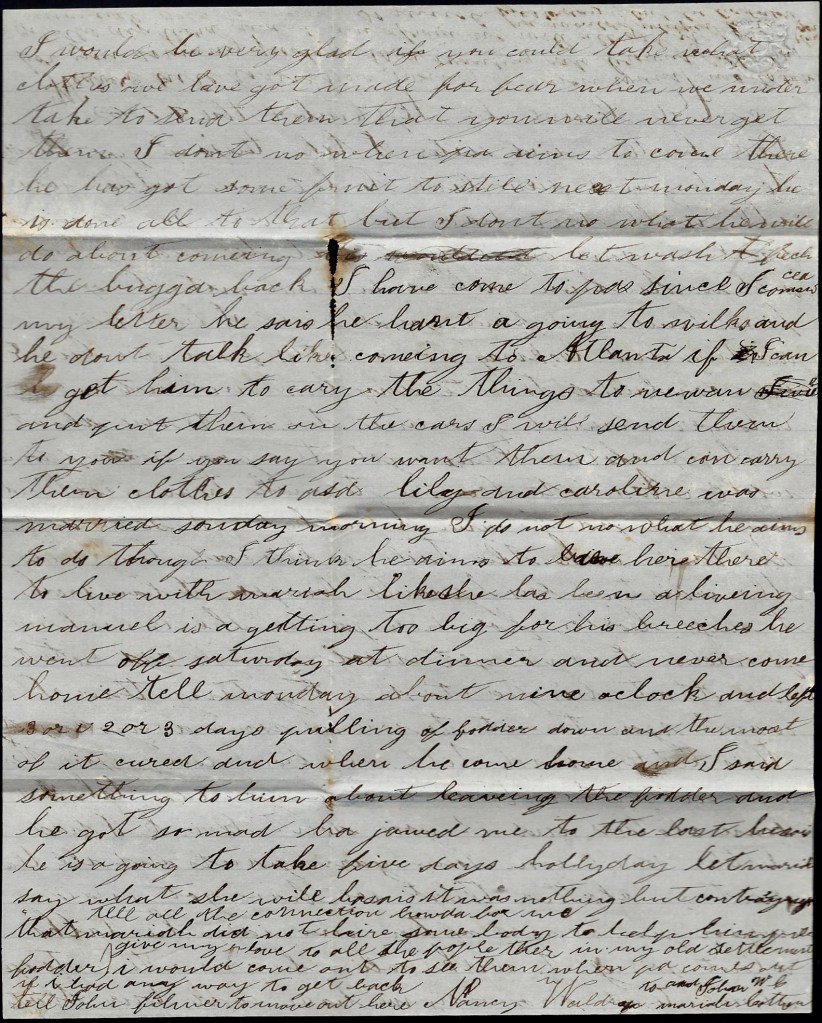 I would be very glad if you could take what
clothes we have got made for fear when we under
take to send them that you will never get
them I dont no when pa aims to come there
he has got some fruit to still next monday he
is done all to that but I dont no what he will
do about comeing let wash fech
the bugga back I have come to pas since I comen
ced
my letter he sais he hant a going to wilks and
he dont talk like comeing to Atlanta if I can
get him to cary the things to newnan
and put them on the cars I will send them
to you if you say you want them and con carry
them clothes to asa lily and caroline was
married sonday morning I do not no what he aims
to do though I think he aims to leave here there
to live with mariah like she has been a liveing
manuel is a getting too big for his breeches he
went off saturday at dinner and never come
home tell monday about nine oclock and left
2 or 3 days pulling of fodder down and the most
of it cured and when he come home and I said
something to him about leaveing the fodder and
he got so mad he jawed me to the last he sais
he is a going to take five days hollyday let mariah
say what she will he sais it was nothing but
tell all the connection howda for me
that mariah did not hire some body to help him pull
give my love to all the people ther in my old settlement
fodder i would come out to see them when pa comes out
if i had any way to get back
tell John filmer to move out here Nancy
to and John W G